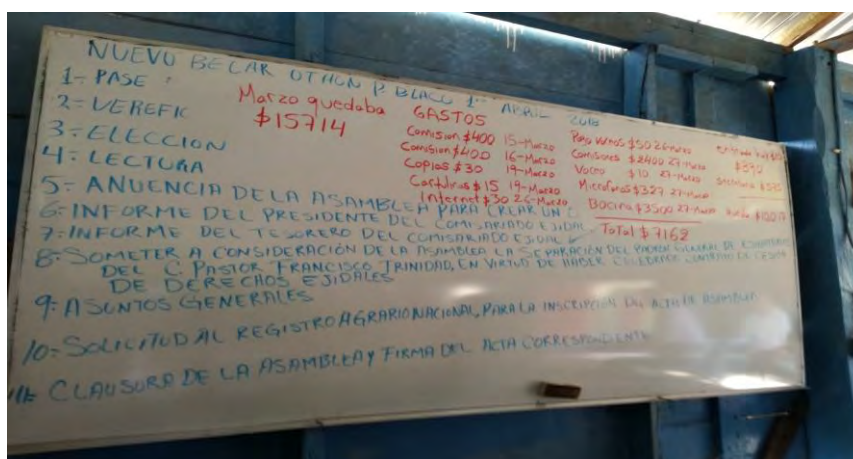 NUEVO BECAR OTHON P. BLACO 1- ABRIL
1- PASE :
2- VEREFIC
3- ELECCION
4- LECTURA
5- ANUENCIA DE LA ASAMBLEA PARA CREAR UN
6- INFORME DEL PRESIDENTE DEL COMISARIADO EJIDAL
7- INFORME DEL TESORERO DEL COMISARIADO EJIDAL
8- SOMETER A CONSIDERACIÓN DE LA ASAMBLEA LA SEPARACIÓN DEL PADRON GENERAL DE
DEL C. PASTOR FRANCISCO TRINIDAD, EN VIRTUD DE HABER CELEBRADO CONTRATO DE CESION
DE DERECHOS EJIDALES
9- ASUNTOS GENERALES
10- SOLICITUD AL REGISTRO AGRARIO NACIONAL, PARA LA INSCRIPCIÓN DEL ACTA DE ASAMBLEA
11- CLAUSURA DE LA ASAMBLEA Y FIRMA DEL ACTA CORRESPONDIENTE
Marzo quedaba
$15714
GASTOS
Comision $400 15-Marzo
Comision $400 16-Marzo
Copias $30 19-Marzo
Cartulinas $15 19-Marzo
Internet $30 26-Marzo
$50 26-Marzo
Comisiones $2400 27-Marzo
Voceo $10 27-Marzo
Microfonos $327 27-Marzo
Bocina $3500 27-Marzo
Total $7162